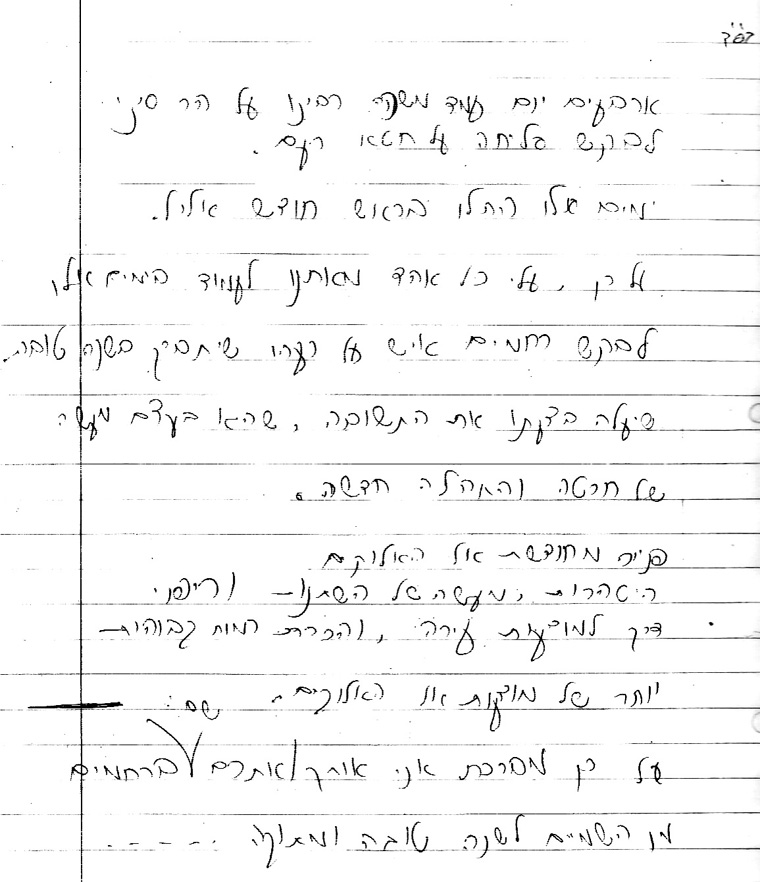 בס"ד
ארבעים יום עמד משה רבינו על הר סיני
לבקש סליחה על חטא העם.
ימים אלו החלו בראש חודש אלול.
על כן, על כל אחד מאתנו לעמוד בימים אלו
לבקש רחמים איש על רעהו שיתברך בשנה טובה.
שיעלה בידינו את התשובה, שהיא בעצם מעשה
של חרטה והתחלה חדשה.
פניה מחודשת אל האלוקים
היטהרות, מעשה של השתנות
דרך למודעות ערה, והכרת רמות גבוהות
יותר של מודעות את האלוקים. שם:
על כן מברכת אני אותך/אתכם ברחמים
מן השמיים לשנה טובה ומתוקה - - - -